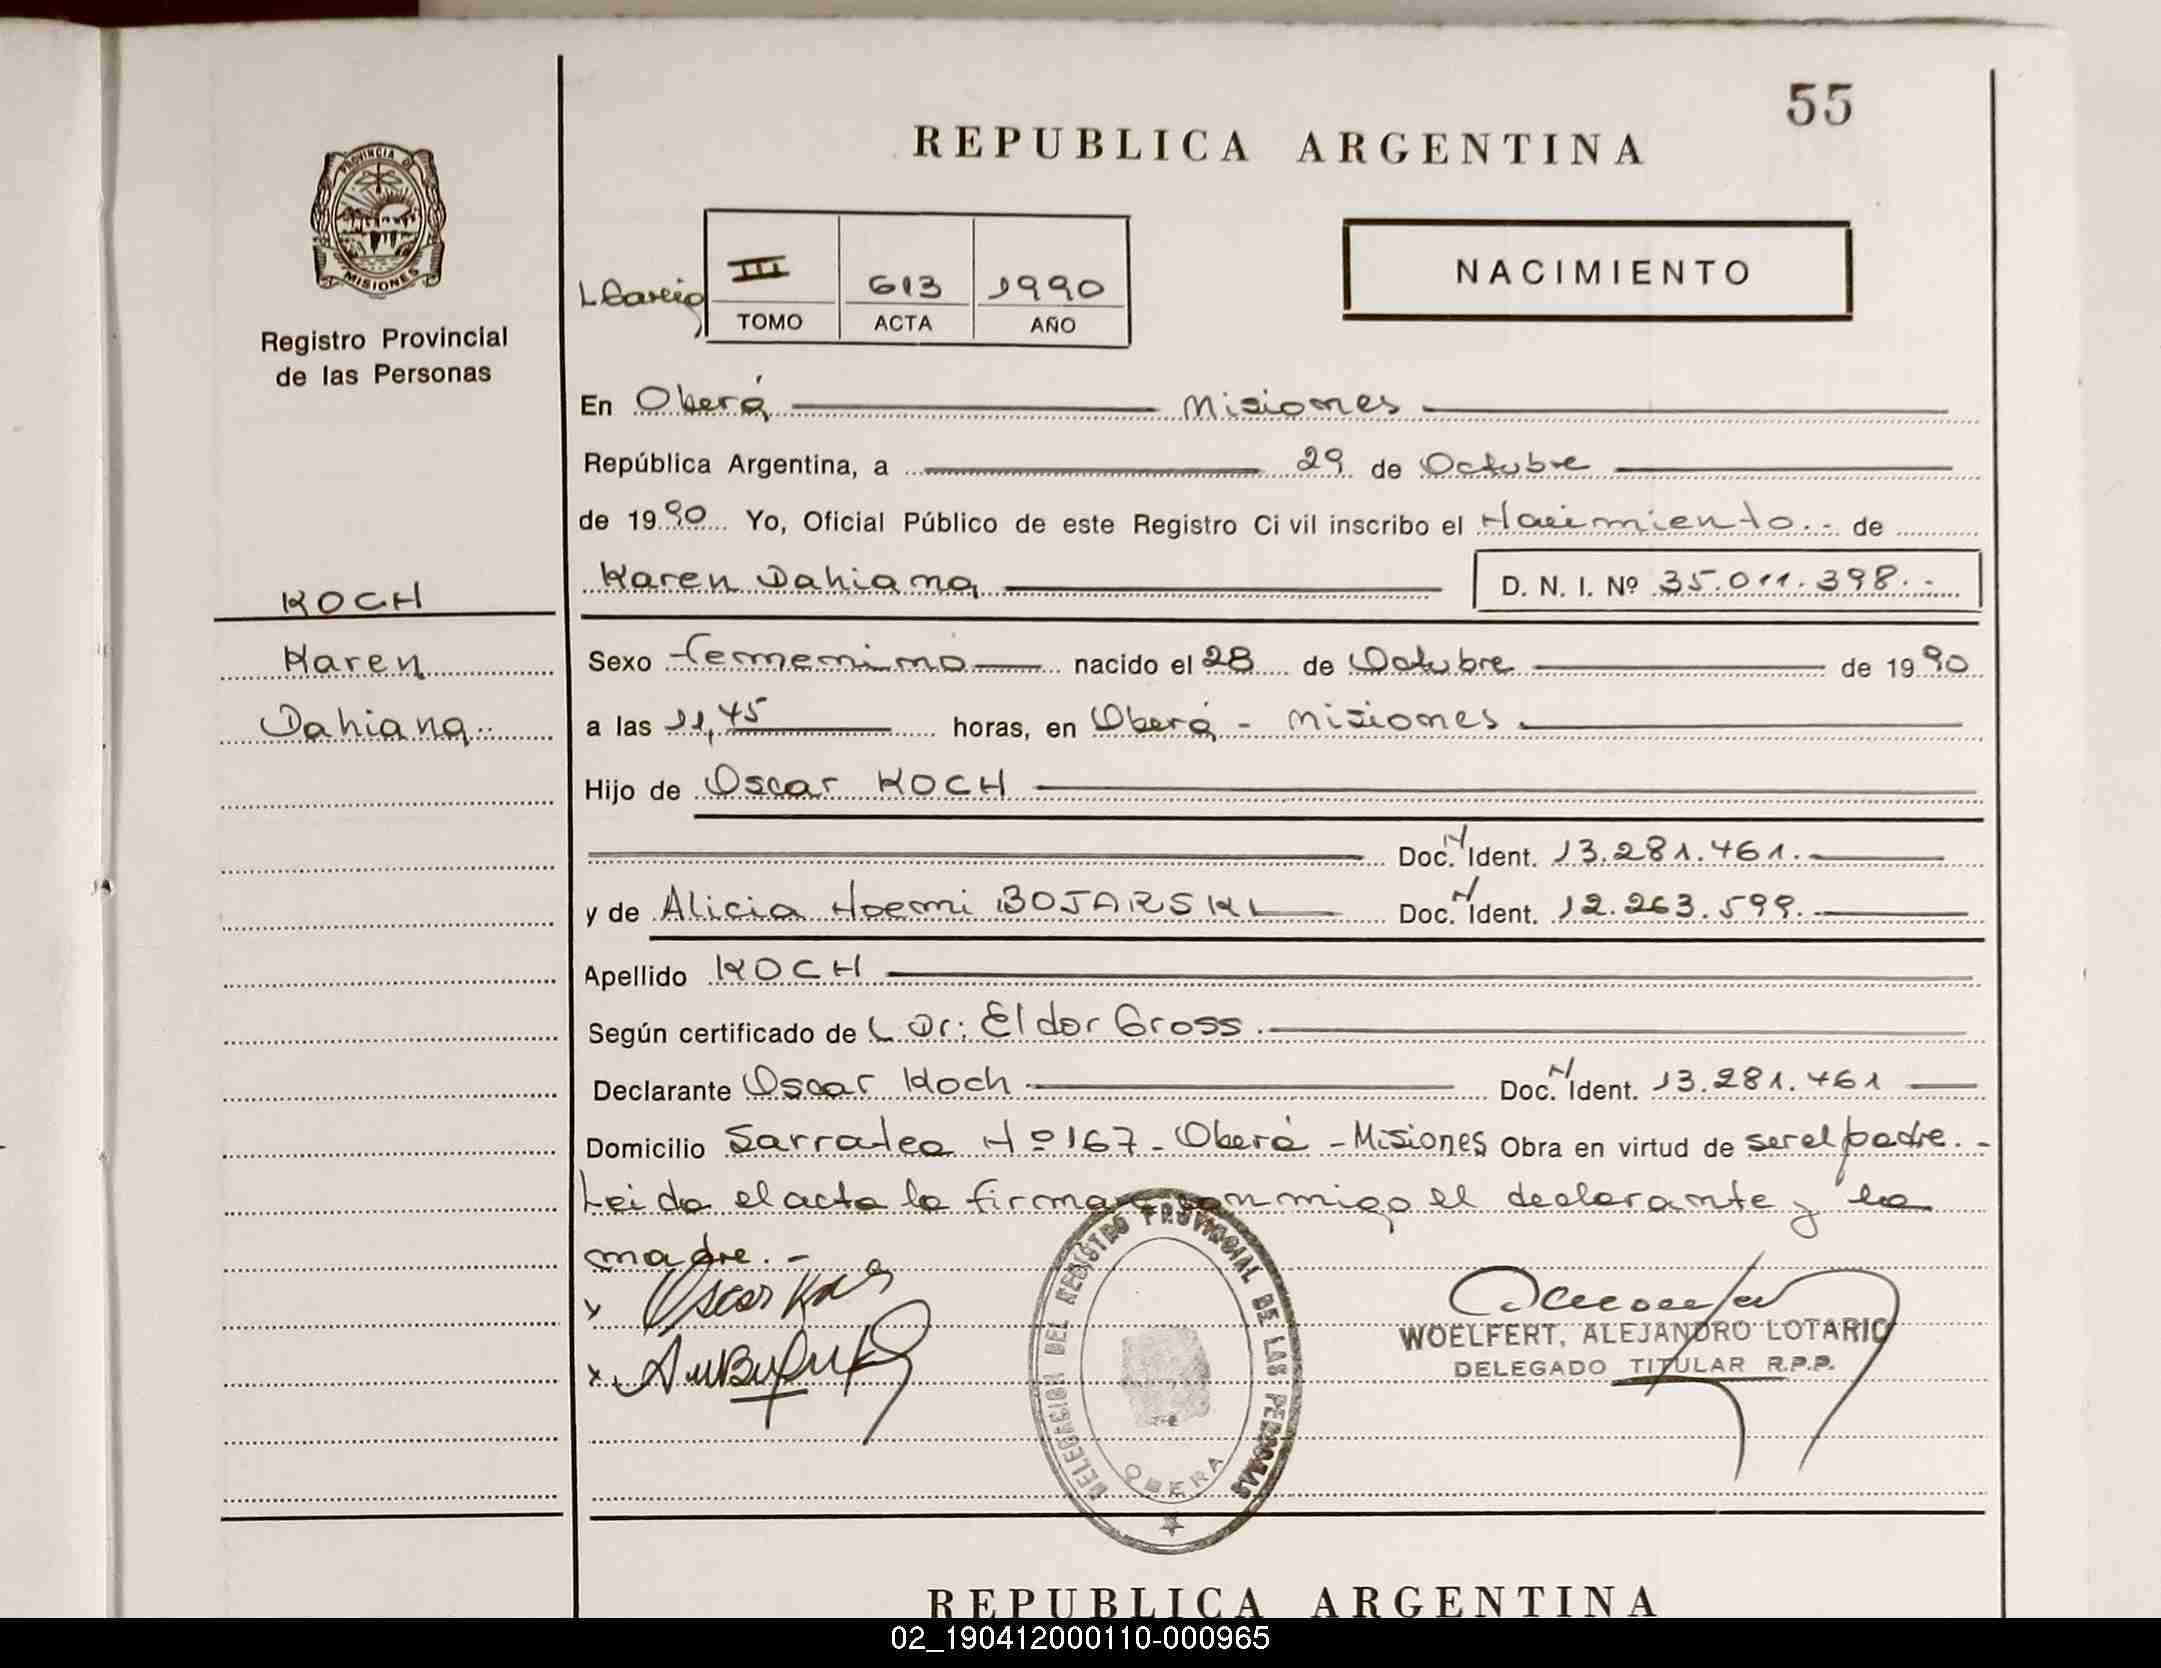 55
REPUBLICA ARGENTINA
PROVINCIA DE
MISIONES
Registro Provincial
de las Personas
III 613 1990
TOMO ACTA AÑO
NACIMIENTO
En Oberá Misiones
República Argentina, a 29 de Octubre
de 1990 Yo, Oficial Público de este Registro Ci vil inscribo el Nacimiento.- de
Karen Dahiana D. N. I. Nº 35.011.398.-
KOCH
Karen
Dahiana.-
Sexo femenino nacido el 28 de Octubre de 1990
a las 11,45 horas, en Oberá - Misiones
Hijo de Oscar KOCH
Doc. N Ident. 13.281.461.
y de Alicia Noemi BOJARSKI Doc. N Ident. 12.263.599.
Apellido KOCH
Según certificado de L Dr: Eldor Gross.
Declarante Oscar Koch Doc. N Ident. 13.281.461
Domicilio Sarratea Nº 167 - Oberá - Misiones Obra en virtud de ser el padre.-
Leida el acta la firma conmigo el declarante y la
madre.-
x Oscar Koch
x
WOELFERT, ALEJANDRO LOTARIO
DELEGADO TITULAR R.P.P.
DELEGACION DEL REGISTRO PROVINCIAL DE LAS PERSONAS
OBERA
REPUBLICA ARGENTINA
02_190412000110-000965